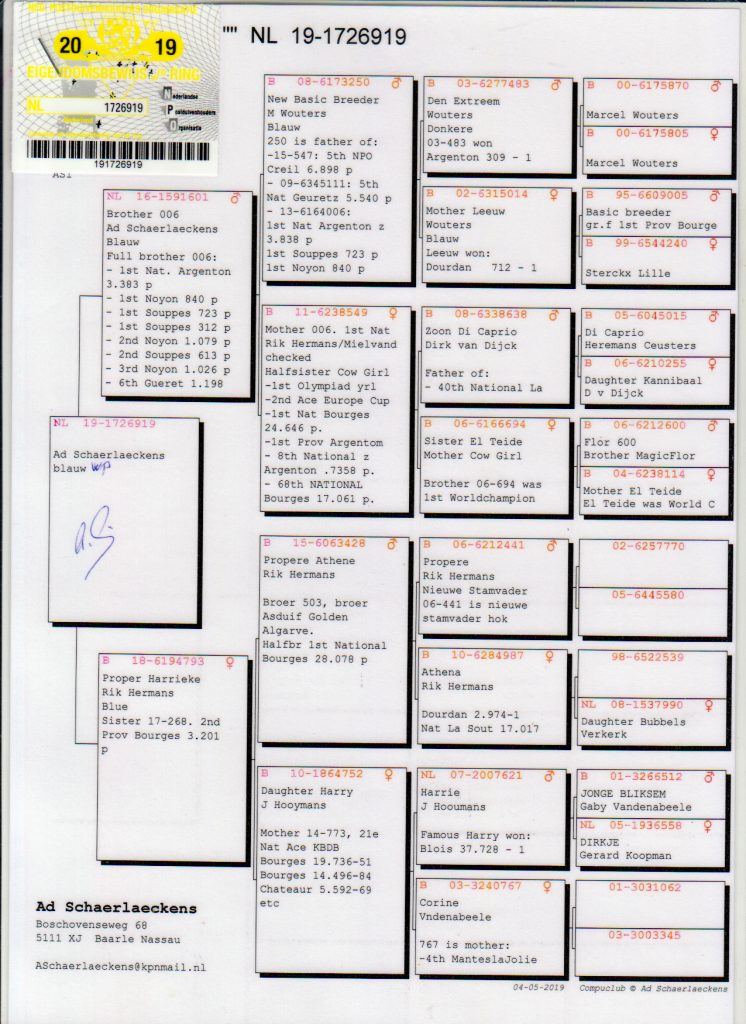 "" NL 19-1726919
20 19
EIGENDOMSBEWIJS RING
NL 1726919
Nederlandse
Postduivenhouders
Organisatie
191726919
NL 19-1726919
Ad Schaerlaeckens
blauw wp
NL 16-1591601 ♂
Brother 006
Ad Schaerlaeckens
Blauw
Full brother 006:
- 1st Nat. Argenton
3.383 p
- 1st Noyon 840 p
- 1st Souppes 723 p
- 1st Souppes 312 p
- 2nd Noyon 1.079 p
- 2nd Souppes 613 p
- 3rd Noyon 1.026 p
- 6th Gueret 1.198
B 18-6194793 ♀
Proper Harrieke
Rik Hermans
Blue
Sister 17-268. 2nd
Prov Bourges 3.201
p
B 08-6173250 ♂
New Basic Breeder
M Wouters
Blauw
250 is father of:
-15-547: 5th NPO
Creil 6.898 p
- 09-6345111: 5th
Nat Geuretz 5.540 p
- 13-6164006:
1st Nat Argenton z
3.838 p
1st Souppes 723 p
1st Noyon 840 p
B 11-6238549 ♀
Mother 006. 1st Nat
Rik Hermans/Mielvand
checked
Halfsister Cow Girl
-1st Olympiad yrl
-2nd Ace Europe Cup
-1st Nat Bourges
24.646 p.
-1st Prov Argentom
- 8th National z
Argenton .7358 p.
- 68th NATIONAL
Bourges 17.061 p.
B 15-6063428 ♂
Propere Athene
Rik Hermans
Broer 503, broer
Asduif Golden
Algarve.
Halfbr 1st National
Bourges 28.078 p
B 10-1864752 ♀
Daughter Harry
J Hooymans
Mother 14-773, 21e
Nat Ace KBDB
Bourges 19.736-51
Bourges 14.496-84
Chateaur 5.592-69
etc
B 03-6277483 ♂
Den Extreem
Wouters
Donkere
03-483 won
Argenton 309 - 1
B 02-6315014 ♀
Mother Leeuw
Wouters
Blauw
Leeuw won:
Dourdan 712 - 1
B 08-6338638 ♂
Zoon Di Caprio
Dirk van Dijck
Father of:
- 40th National La
B 06-6166694 ♀
Sister El Teide
Mother Cow Girl
Brother 06-694 was
1st Worldchampion
B 06-6212441 ♂
Propere
Rik Hermans
Nieuwe Stamvader
06-441 is nieuwe
stamvader hok
B 10-6284987 ♀
Athena
Rik Hermans
Dourdan 2.974-1
Nat La Sout 17.017
NL 07-2007621 ♂
Harrie
J Hooumans
Famous Harry won:
Blois 37.728 - 1
B 03-3240767 ♀
Corine
Vndenabeele
767 is mother:
-4th ManteslaJolie
B 00-6175870 ♂
Marcel Wouters
B 00-6175805 ♀
Marcel Wouters
B 95-6609005 ♂
Basic breeder
gr.f 1st Prov Bourge
B 99-6544240 ♀
Sterckx Lille
B 05-6045015 ♂
Di Caprio
Heremans Ceusters
B 06-6210255 ♀
Daughter Kannibaal
D v Dijck
B 06-6212600 ♂
Flor 600
Brother MagicFlor
B 04-6238114 ♀
Mother El Teide
El Teide was World C
02-6257770
05-6445580
98-6522539
NL 08-1537990 ♀
Daughter Bubbels
Verkerk
B 01-3266512 ♂
JONGE BLIKSEM
Gaby Vandenabeele
NL 05-1936558 ♀
DIRKJE
Gerard Koopman
01-3031062
03-3003345
Ad Schaerlaeckens
Boschovenseweg 68
5111 XJ Baarle Nassau
ASchaerlaeckens@kpnmail.nl
04-05-2019 Compuclub © Ad Schaerlaeckens